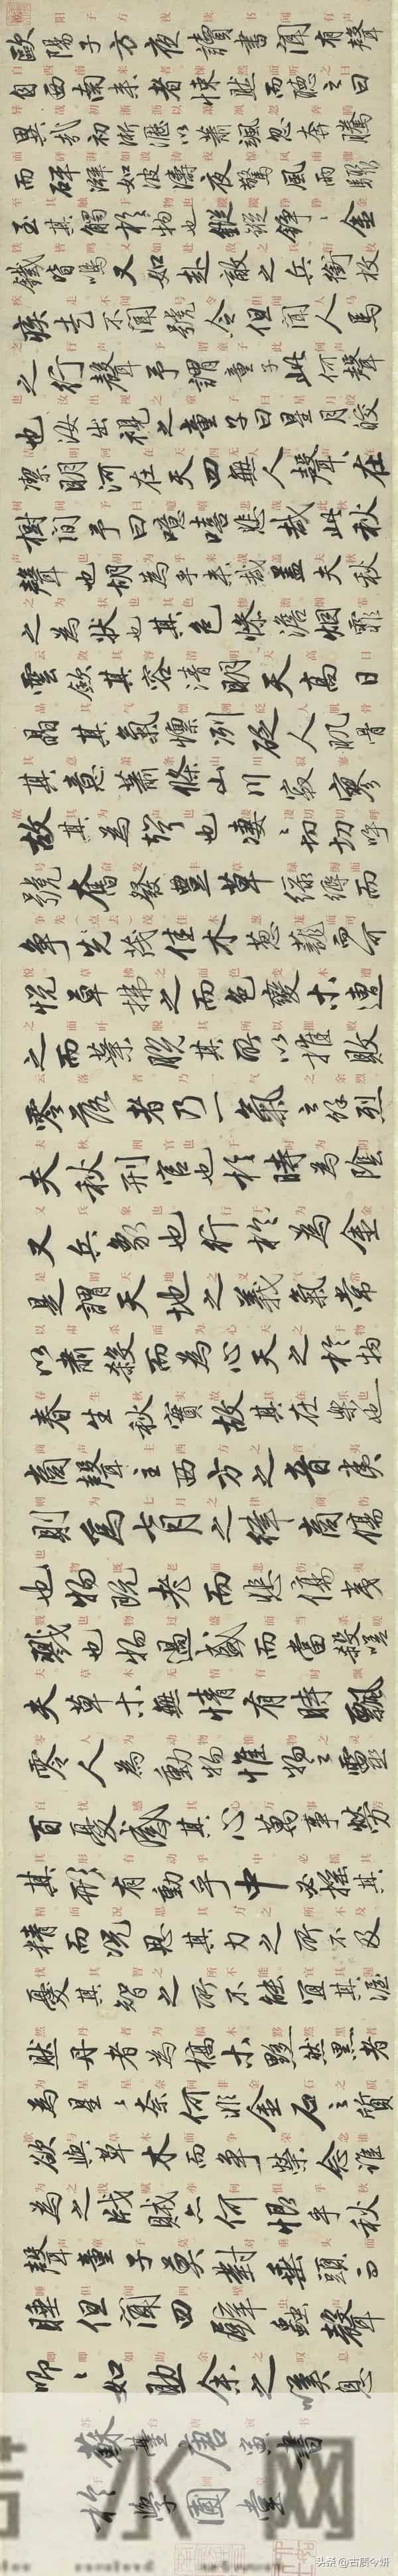 歐陽子方夜讀書聞有聲
自西南来者悚然而聽之曰
異哉初淅瀝以蕭颯忽奔騰
而砰湃如波濤夜驚風雨驟
至其觸於物也鏦鏦錚〻金
鐵皆鳴又如赴敵之兵銜枚
疾走不聞號令但聞人馬
之行聲予謂童子此何聲
也汝出視之童子曰星月皎
潔明河在天四無人聲〻在
樹間予曰噫嘻悲哉此秋
聲也胡為乎来哉蓋夫秋
之為狀也其色慘澹烟霏
雲歛其容清明天高日
晶其氣慄冽砭人肌骨
其意蕭條山川寂寥
故其為聲也凄〻切切呼
號奮發豐草綠縟而
争先茂佳木葱蘢而可
悦草拂之而色變木遭
之而葉脱其所以摧敗
零落者乃一氣之餘烈
夫秋刑官也於時為陰
又兵象也行於為金
是謂天地之義氣常
以肅殺而為心天之於物
春生秋實故其在樂也
商聲主西方之音夷
則為七月之律商傷
也物既老而悲傷夷
戮也物過盛而當殺嗟
夫草木無情有時飄
零人為動物惟物之靈
百憂感其心萬事勞
其形有動乎中必摇其
精而况思其力之所不及
憂其智之所不能宜其渥
然丹者為槁木黟然黑者
為星〻奈何非金石之質
欲與草木而争榮念誰
為之戕賊亦何恨乎秋
聲童子莫對垂頭而
睡但聞四壁蟲聲
唧〻如助余之嘆息
蘇臺唐寅書
於學圃堂
头条 @古质今妍